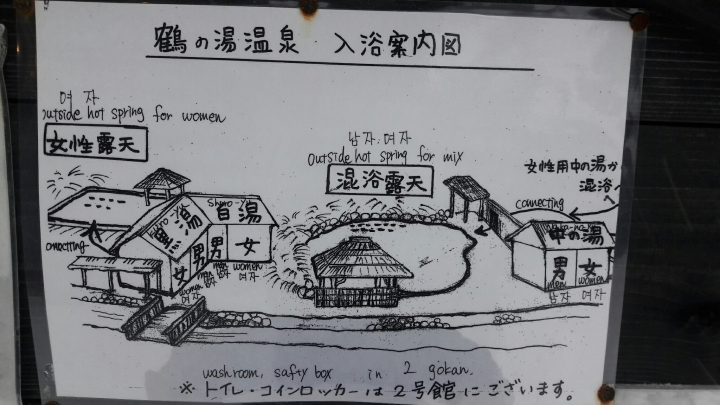 鶴の湯温泉 入浴案内図
여자
outside hot spring for women
女性露天
남자.여자
outside hot spring for mix
混浴露天
女性用中の湯か
混浴へ
connecting
黒湯
Shiro-
白湯
中の湯
onnecting
女
男
男
女
men
women
남자
여자
women
여자
男
女
men
women
남자
여자
washroom, safty box in 2 gokan.
※トイレ・コインロッカーは2号館にございます。